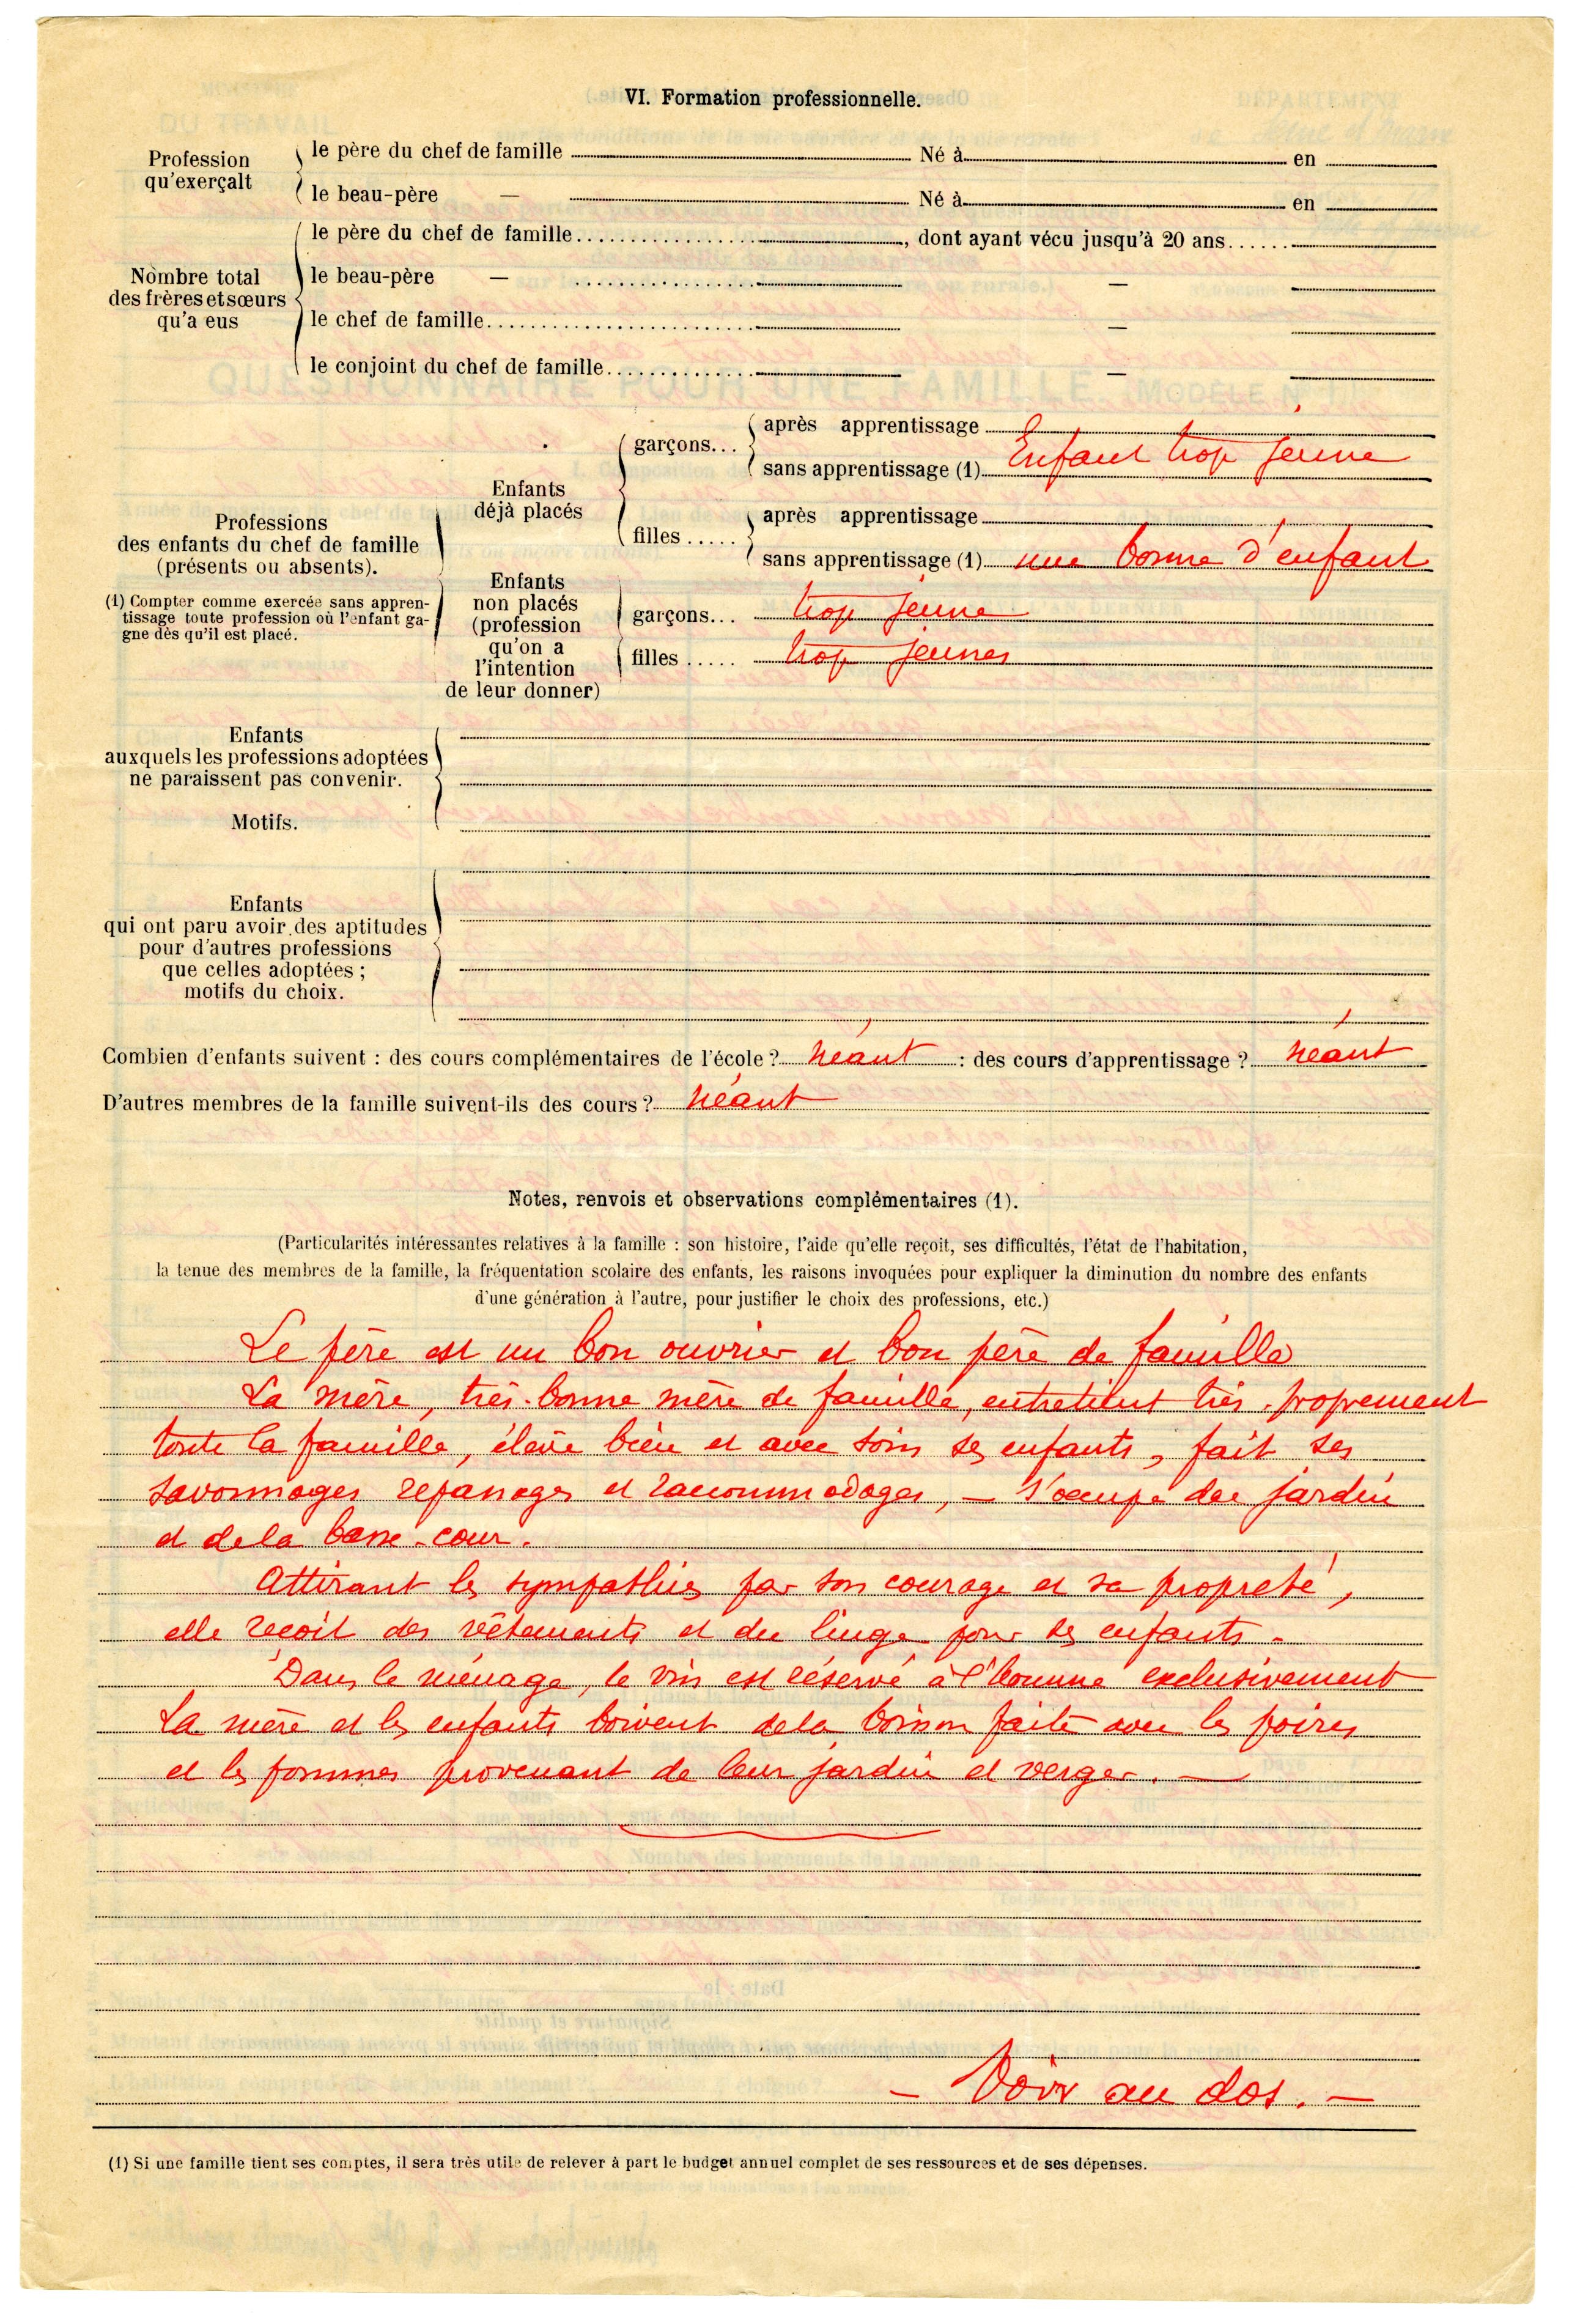 VI. Formation professionnelle.
Profession qu'exerçait
le père du chef de famille Né à en
le beau-père — Né à en
Nombre total des frères et sœurs qu'a eus
le père du chef de famille, dont ayant vécu jusqu'à 20 ans
le beau-père — —
le chef de famille —
le conjoint du chef de famille —
Professions
des enfants du chef de famille
(présents ou absents).
(1) Compter comme exercée sans appren-
tissage toute profession où l'enfant ga-
gne dès qu'il est placé.
Enfants
déjà placés
garçons...
après apprentissage
sans apprentissage (1) Enfant trop jeune
filles.....
après apprentissage
sans apprentissage (1) une bonne d'enfant
Enfants
non placés
(profession
qu'on a
l'intention
de leur donner)
garçons... trop jeune
filles..... trop jeunes
Enfants
auxquels les professions adoptées
ne paraissent pas convenir.
Motifs.
Enfants
qui ont paru avoir des aptitudes
pour d'autres professions
que celles adoptées ;
motifs du choix.
Combien d'enfants suivent : des cours complémentaires de l'école ? néant : des cours d'apprentissage ? néant
D'autres membres de la famille suivent-ils des cours ? néant
Notes, renvois et observations complémentaires (1).
(Particularités intéressantes relatives à la famille : son histoire, l'aide qu'elle reçoit, ses difficultés, l'état de l'habitation,
la tenue des membres de la famille, la fréquentation scolaire des enfants, les raisons invoquées pour expliquer la diminution du nombre des enfants
d'une génération à l'autre, pour justifier le choix des professions, etc.)
Le père est un bon ouvrier et bon père de famille
La mère, très-bonne mère de famille, entretient très-proprement
toute la famille, élève bien et avec soin ses enfants, fait ses
savonnages repassages et raccommodages, — s'occupe du jardin
et de la basse-cour.
Attirant les sympathies par son courage et sa propreté,
elle reçoit des vêtements et du linge pour ses enfants -
Dans le ménage, le vin est réservé à l'homme exclusivement
La mère et les enfants boivent de la boisson faite avec les poires
et les pommes provenant de leur jardin et verger. —
— Voir au dos. —
(1) Si une famille tient ses comptes, il sera très utile de relever à part le budget annuel complet de ses ressources et de ses dépenses.